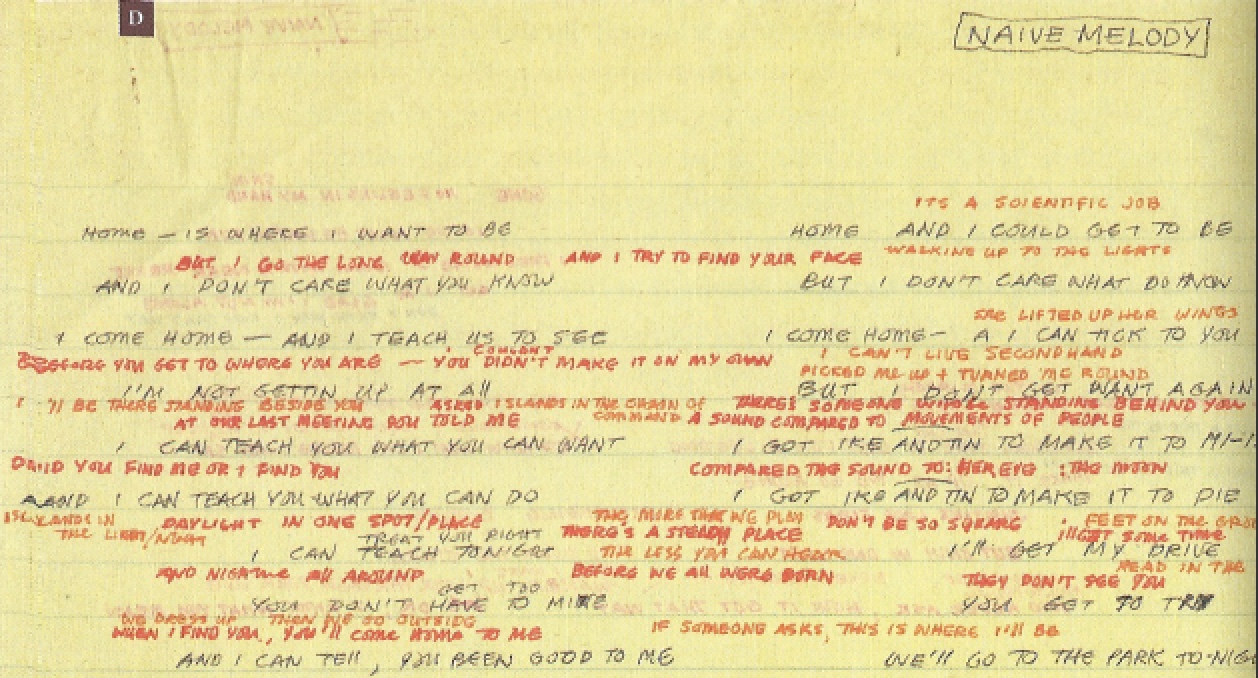 D
NAIVE MELODY
ITS A SCIENTIFIC JOB
HOME — IS WHERE I WANT TO BE
HOME AND I COULD GET TO BE
BUT I GO THE LONG WAY ROUND AND I TRY TO FIND YOUR FACE
WALKING UP TO THE LIGHTS
AND I DON'T CARE WHAT YOU KNOW
BUT I DON'T CARE WHAT DO KNOW
SHE LIFTED UP HER WINGS
I COME HOME — AND I TEACH US TO SEE
I COME HOME — A I CAN TICK TO YOU
COULDN'T
BEFORE YOU GET TO WHERE YOU ARE — YOU DIDN'T MAKE IT ON MY OWN
I CAN'T LIVE SECONDHAND
PICKED ME UP + TURNED ME ROUND
I'M NOT GETTIN UP AT All
BUT I DON'T GET WANT AGAIN
I 'll BE THERE STANDING BESIDE YOU
ASKED ISLANDS IN THE CHAIN OF COMMAND
THERES SOMEONE WHO'LL STANDING BEHIND YOU
AT OUR LAST MEETING YOU TOLD ME
A SOUND COMPARED TO MOVEMENTS OF PEOPLE
I CAN TEACH YOU WHAT YOU CAN WANT
I GOT IKE AND TIN TO MAKE IT TO
DID YOU FIND ME OR I FIND YOU
COMPARED THE SOUND TO: HER EYE : THE MOON
AND I CAN TEACH YOU WHAT YOU CAN DO
I GOT IKE AND TIN TO MAKE IT TO DIE
ISLANDS IN THE LIGHT/NIGHT
DAYLIGHT IN ONE SPOT/PLACE
THE MORE THAT WE PLAY
DON'T BE SO SQUARE
FEET ON THE
TREAT YOU RIGHT
THERE'S A STEADY PLACE
I'll GET SOME TIME
I CAN TEACH TONIGHT
THE LESS YOU CAN HEAR
I'll GET MY DRIVE
HEAD IN THE
AND NIGHTIME All AROUND
BEFORE WE All WERE BORN
THEY DON'T SEE YOU
GET TOO
YOU DON'T HAVE TO
YOU GET TO TRY
WE DRESS UP THEN WE GO OUTSIDE
WHEN I FIND YOU, YOU'll COME HOME TO ME
IF SOMEONE ASKS, THIS IS WHERE I'll BE
AND I CAN TEll, YOU BEEN GOOD TO ME
WE'll GO TO THE PARK TO-NIG